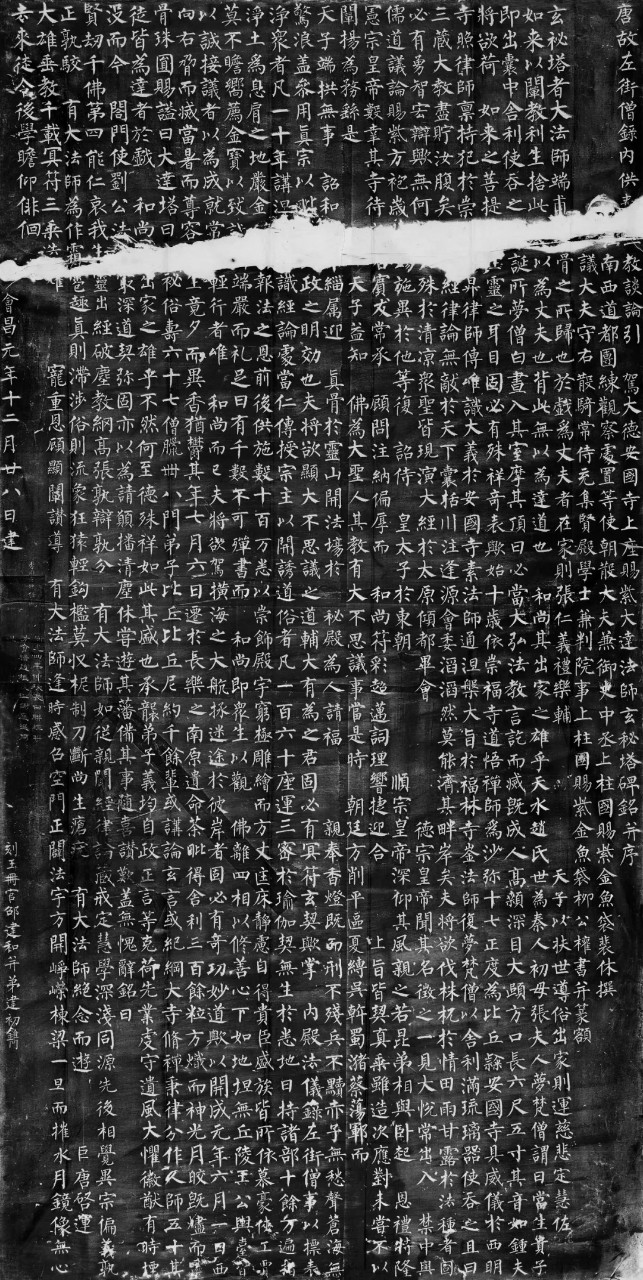 唐故左街僧錄內供教談論引 駕大德安國寺上座賜紫大達法師玄秘塔碑銘并序
南西道都團練觀察處置等使朝散大夫兼御史中丞上柱國賜紫金魚袋裴休撰
議大夫守右散騎常侍充集賢殿學士兼判院事上柱國賜紫金魚袋柳公權書并篆額
玄秘塔者大法師端甫骨之所歸也於戲為丈夫者在家則張仁義禮樂輔 天子以扶世導俗出家則運慈悲定慧佐
如來以闡教利生捨此以為丈夫也背此無以為達道也 和尚其出家之雄乎天水趙氏世為秦人初母張夫人夢梵僧謂曰當生貴子
即出囊中舍利使吞之誕所夢僧白晝入其室摩其頂曰必當大弘法教言訖而滅既成人高顙深目大頤方口長六尺五寸其音如鍾夫
將欲荷 如來之菩提生靈之耳目固必有殊祥奇表歟始十歲依崇福寺道悟禪師為沙弥十七正度為比丘隸安國寺具威儀於西明
寺照律師稟持犯於崇昇律師傳唯識大義於安國寺素法師通涅槃大旨於福林寺崟法師復夢梵僧以舍利滿琉璃器使吞之且曰
三藏大教盡貯汝腹矣經律論無敵於天下囊括川注逢源會委滔滔然莫能濟其畔岸矣夫將欲伐株杌於情田雨甘露於法種者固
必有勇智宏辯歟無何殊於清涼眾聖皆現演大經於太原傾都畢會 德宗皇帝聞其名徵之一見大悅常出入 禁中與
儒道議論賜紫方袍歲錫施異於他等復 詔侍 皇太子於東朝 順宗皇帝深仰其風親之若昆弟相與臥起 恩禮特隆
憲宗皇帝數幸其寺待賓友常承 顧問注納偏厚而 和尚符彩超邁詞理響捷迎合 上旨皆契真乘雖造次應對未嘗不以
闡揚為務繇是 天子益知 佛為大聖人其教有大不思議事當是時 朝廷方削平區夏縛吳斡蜀瀦蔡蕩鄆而
天子端拱無事 詔和緇屬迎 真骨於靈山開法場於 秘殿為人請福 親奉香燈既而刑不殘兵不黷赤子無愁聲蒼海無
驚浪蓋參用真宗以毗政之明効也夫將欲顯大不思議之道輔大有為之君固必有冥符玄契歟掌 內殿法儀錄左街僧事以標表
淨眾者凡一十年講涅識經論處當仁傳授宗主以開誘道俗者凡一百六十座運三密於瑜伽契無生於悉地日持諸部十餘万遍指
淨土為息肩之地嚴金報法之恩前後供施數十百万悉以崇飾殿宇窮極雕繪而方丈匡床靜慮自得貴臣盛族皆所依慕豪俠工賈
莫不瞻嚮薦金寶以致誠端嚴而礼足日有千數不可殫書而 和尚即眾生以觀 佛離四相以修善心下如地坦無丘陵王公輿臺皆
以誠接議者以為成就常輕行者唯 和尚而已夫將欲駕橫海之大航拯迷途於彼岸者固必有奇功妙道歟以開成元年六月一日西
向右脅而滅當暑而尊容生竟夕而異香猶鬱其年七月六日遷於長樂之南原遺命荼毗得舍利三百餘粒方熾而神光月皎既燼而靈
骨珠圓賜謚曰大達塔曰秘俗壽六十七僧臘卌八門弟子比丘比丘尼約千餘輩或講論玄言或紀綱大寺脩禪秉律分作人師五十其
徒皆為達者於戲 和尚出家之雄乎不然何至德殊祥如此其盛也承襲弟子義均自政正言等克荷先業虔守遺風大懼徽猷有時堙
沒而今 閤門使劉公法最深道契弥固亦以為請願播清塵休嘗遊其藩備其事隨喜讚歎蓋無愧辭銘曰
賢劫千佛第四能仁哀我生靈出經破塵教網高張孰辯孰分 有大法師如從親聞經律論藏戒定慧學深淺同源先後相覺異宗偏義孰
正孰駮 有大法師為作霜雹趣真則滯涉俗則流象狂猿輕鉤檻莫收柅制刀斷尚生瘡疣 有大法師絕念而遊 巨唐啓運
大雄垂教千載冥符三乘迭耀 寵重恩顧顯闡讚導 有大法師逢時感召空門正闢法宇方開崢嶸棟梁一旦而摧水月鏡像無心
去來徒令後學瞻仰俳佪
會昌元年十二月廿八日建
刻玉冊官邵建和并弟建初鐫